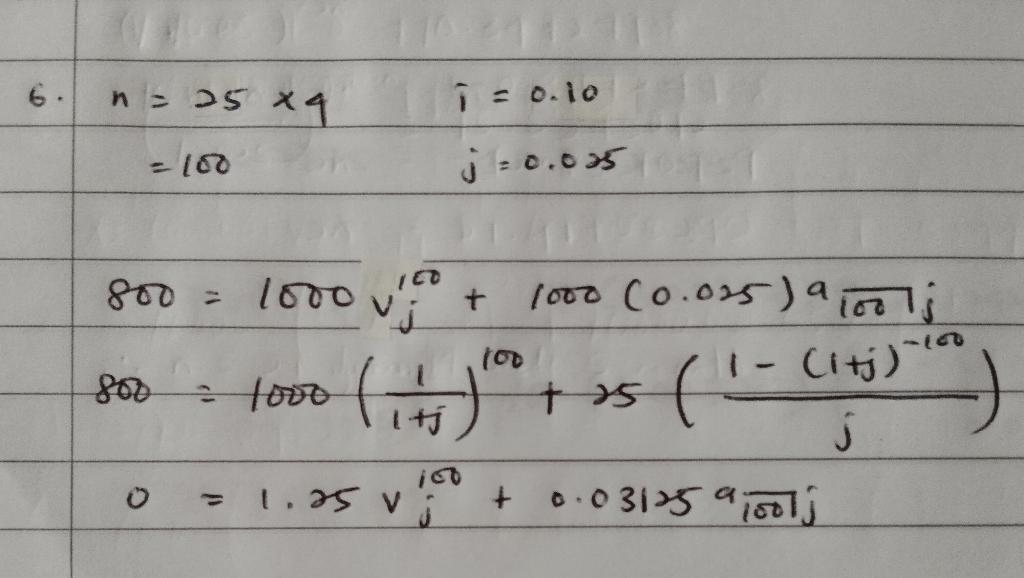 6. n = 25 × 4 i = 0.10
= 100 j = 0.025
800 = 1000 v_j^100 + 1000 (0.025) a_100⌉j
800 = 1000 (1/(1+j))^100 + 25 ((1 - (1+j)^-100)/j)
0 = 1.25 v_j^100 + 0.03125 a_100⌉j